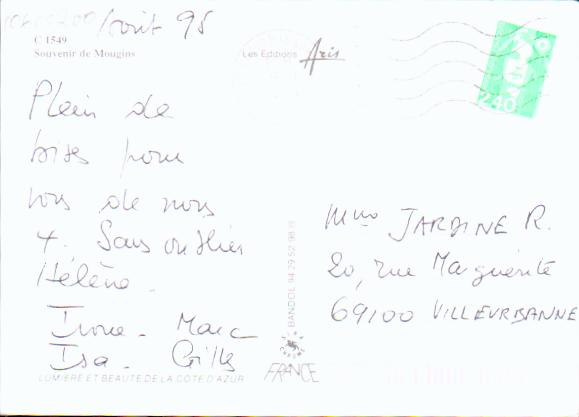 /août 95
C 1549
Souvenir de Mougins
Les Editions Aris
2,40
Plein de
bises pour
vous de nous
4. Sans oublier
Hélène.
Ivone - Marc
Isa - Gilles
Mme JARDINE R.
20, rue Marguerite
69100 VILLEURBANNE
BANDOL 94.29.52.98
FRANCE
LUMIERE ET BEAUTE DE LA COTE D'AZUR